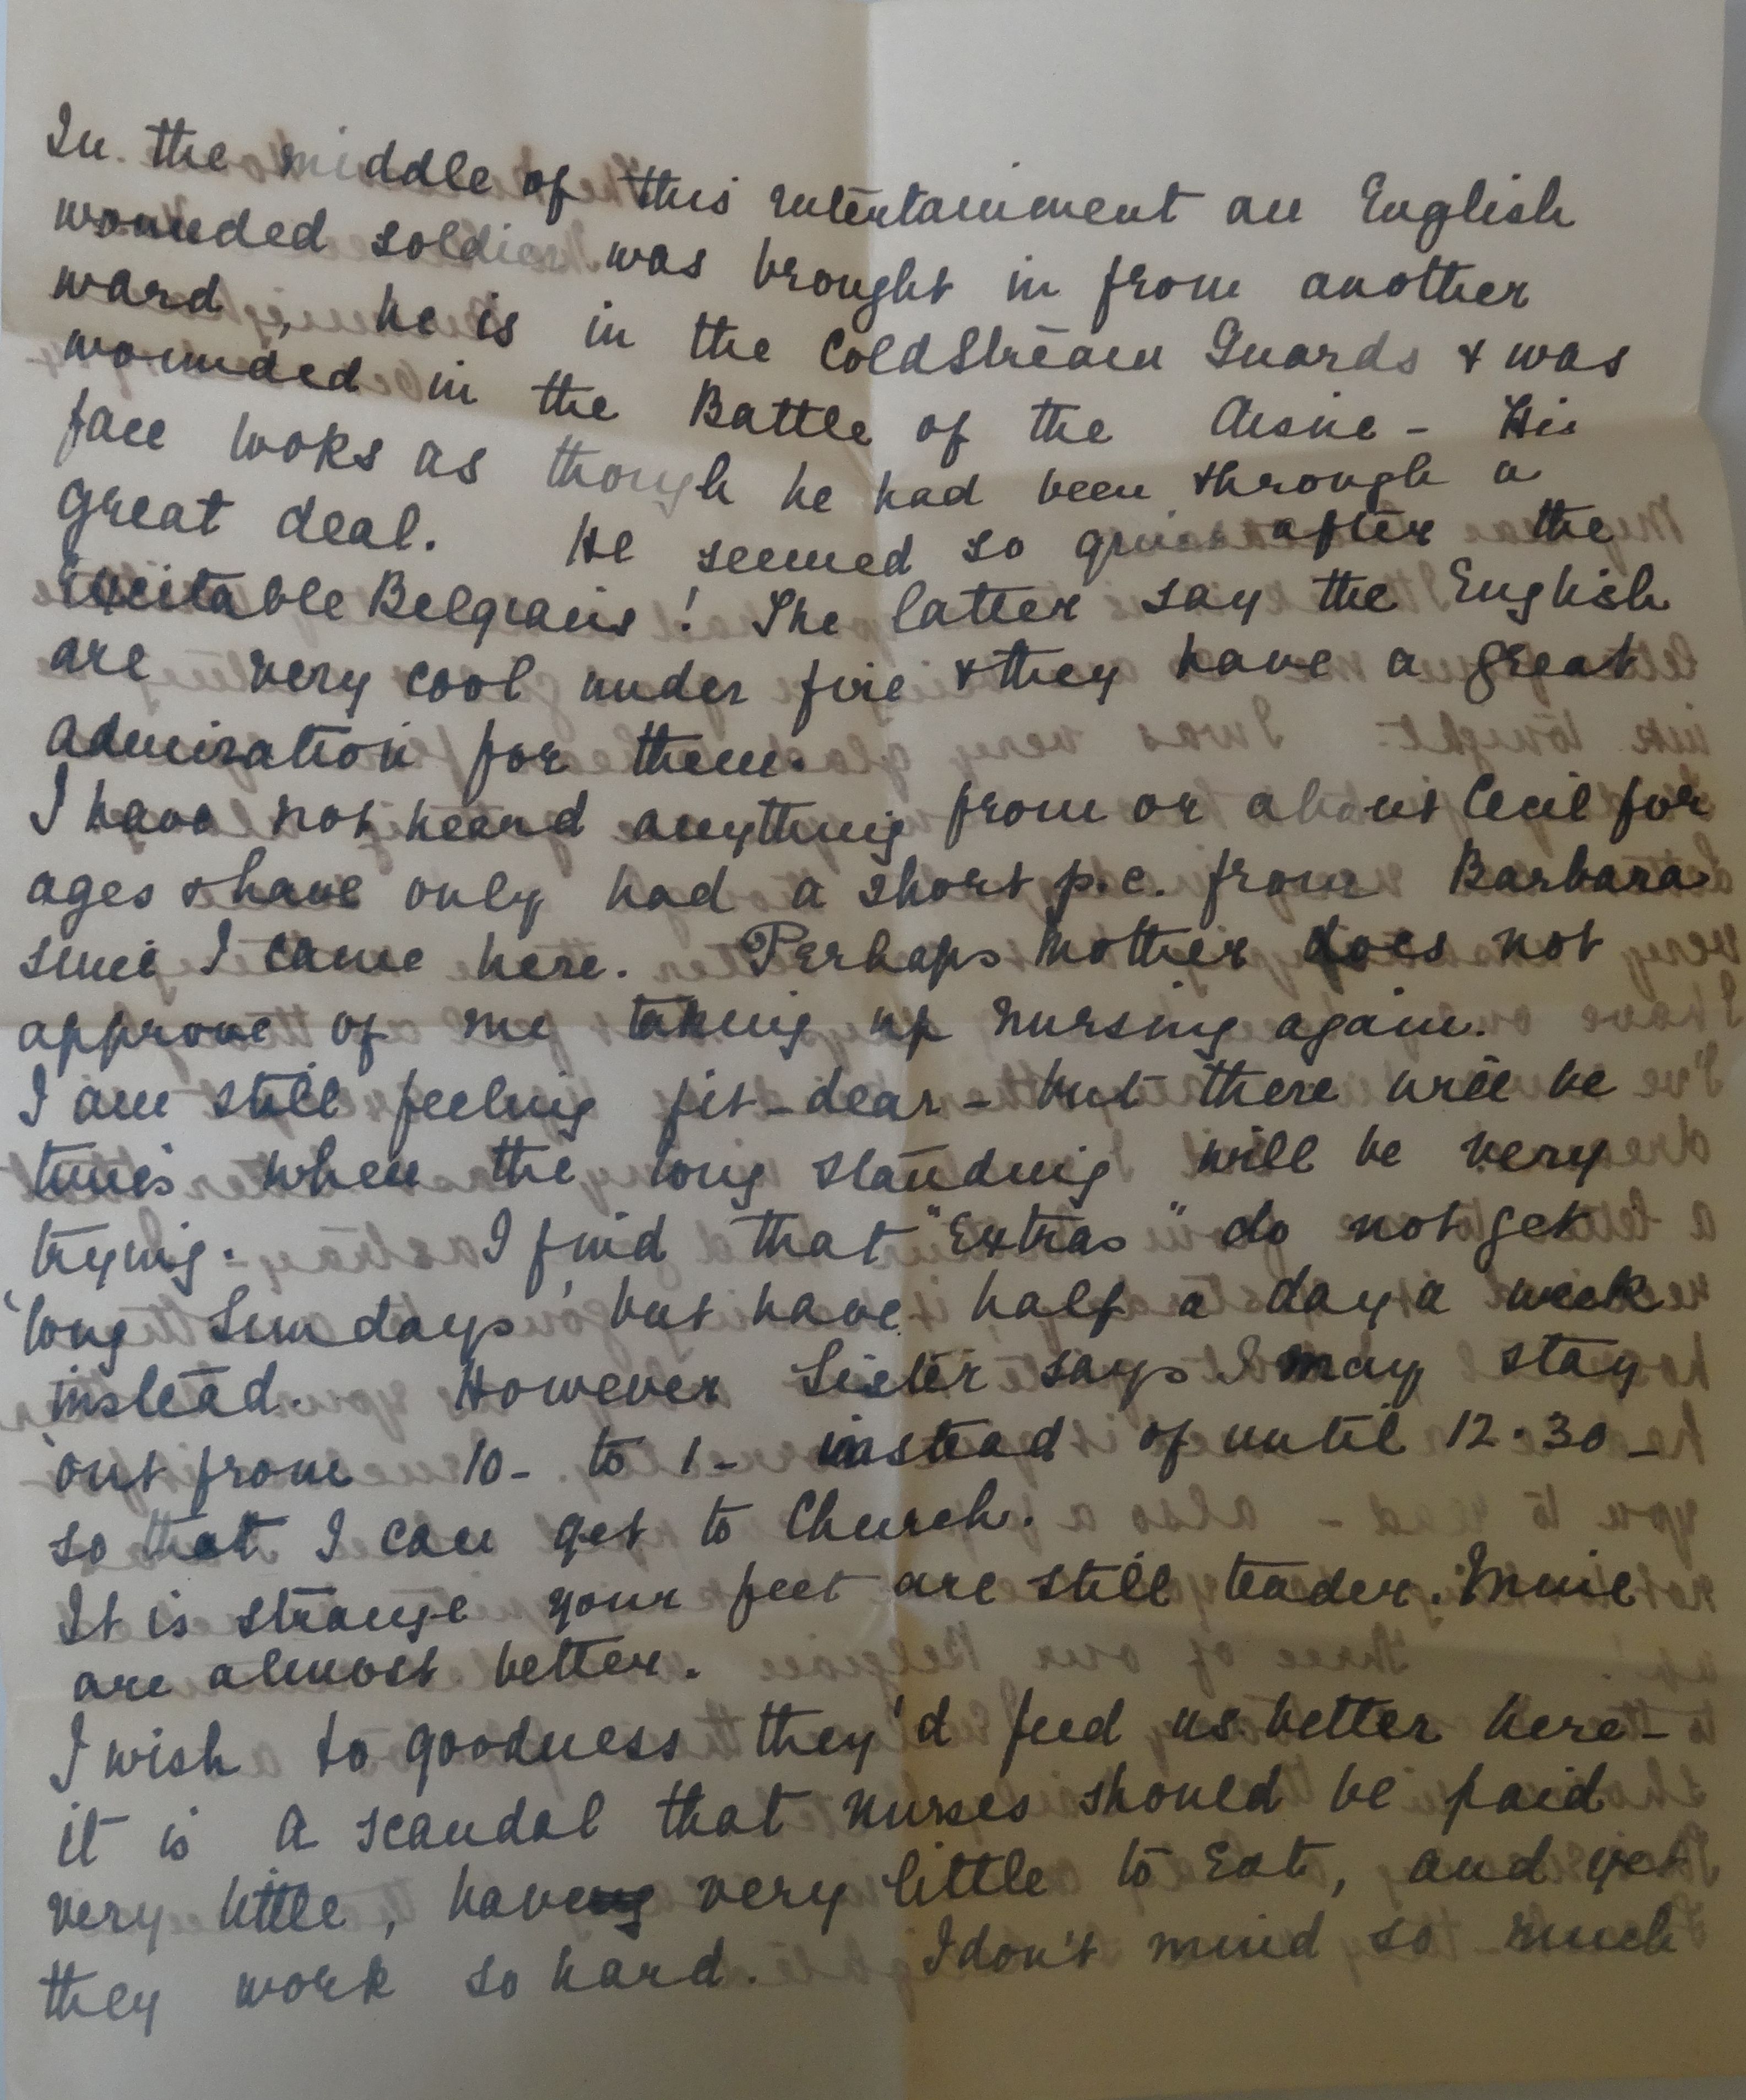 In the middle of this entertainment an English
wounded soldier was brought in from another
ward, he is in the ColdStream Guards & was
wounded in the Battle of the Aisne - His
face looks as though he had been through a
great deal. He seemed so quiet after the
Excitable Belgians! The latter say the English
are very cool under fire & they have a great
admiration for them.
I have not heard anything from or about Cecil for
ages & have only had a short p.c. from Barbara
since I came here. Perhaps Mother does not
approve of me taking up nursing again.
I am still feeling fit - dear - but there will be
times when the long standing will be very
trying. I find that "Extras" do not get
'long Sundays' but have half a day a week
instead. However Sister says I may stay
out from 10 - to 1 - instead of until 12.30 -
so that I can get to Church.
It is strange your feet are still tender. Mine
are almost better.
I wish to goodness they'd feed us better here -
it is a scandal that nurses should be paid
very little, have very little to eat, and yet
they work so hard. I don't mind so much